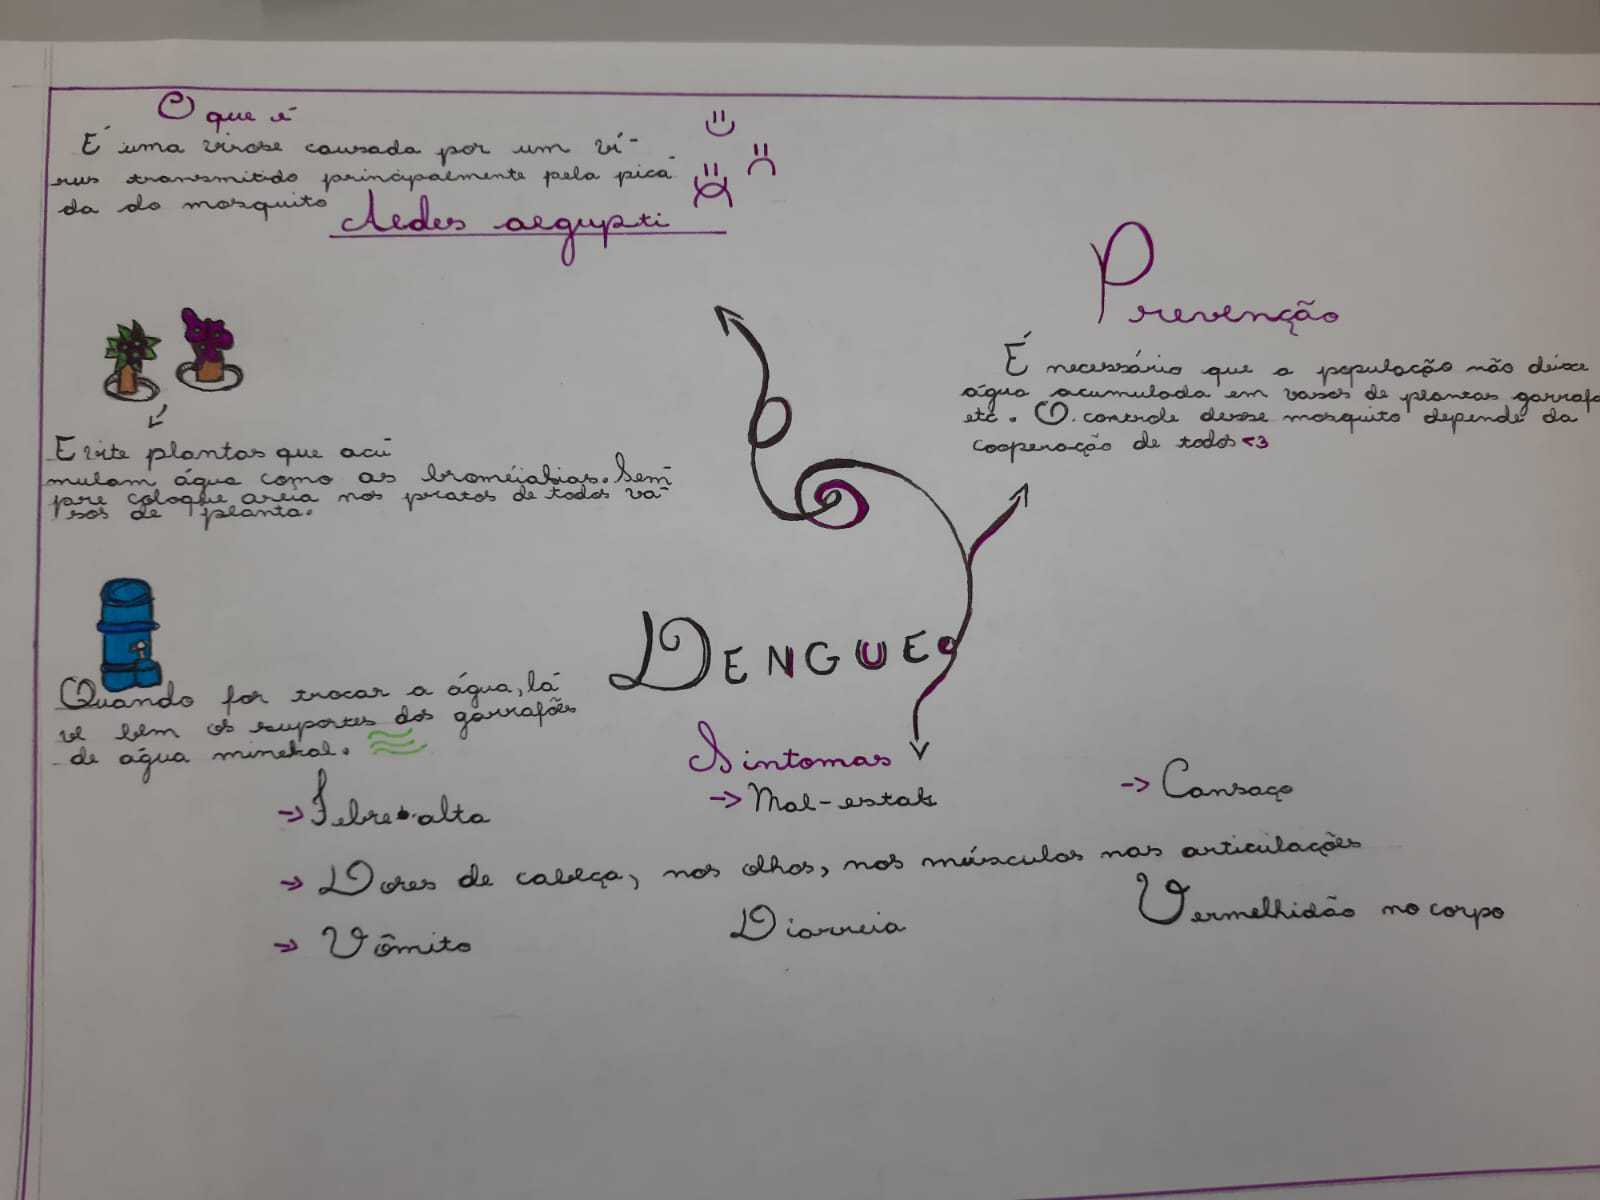 O que é
É uma virose causada por um ví-
rus transmitido principalmente pela pica-
da do mosquito
Aedes aegupti
Prevenção
É necessário que a população não deixe
água acumulada em vasos de plantas garrafa
etc. O controle desse mosquito depende da
cooperação de todos <3
Evite plantas que acú
mulam água como as broméiabias. Sem-
pre coloque areia nos pratos de todos va-
sos de planta.
DENGUE
Quando for trocar a água, lá-
ve bem os suportes dos garrafões
de água mineral.
Sintomas
→ Febre alta
→ Mal-estar
→ Cansaço
→ Dores de cabeça, nos olhos, nos músculos nas articulações
→ Vômito
Diarreia
Vermelhidão no corpo